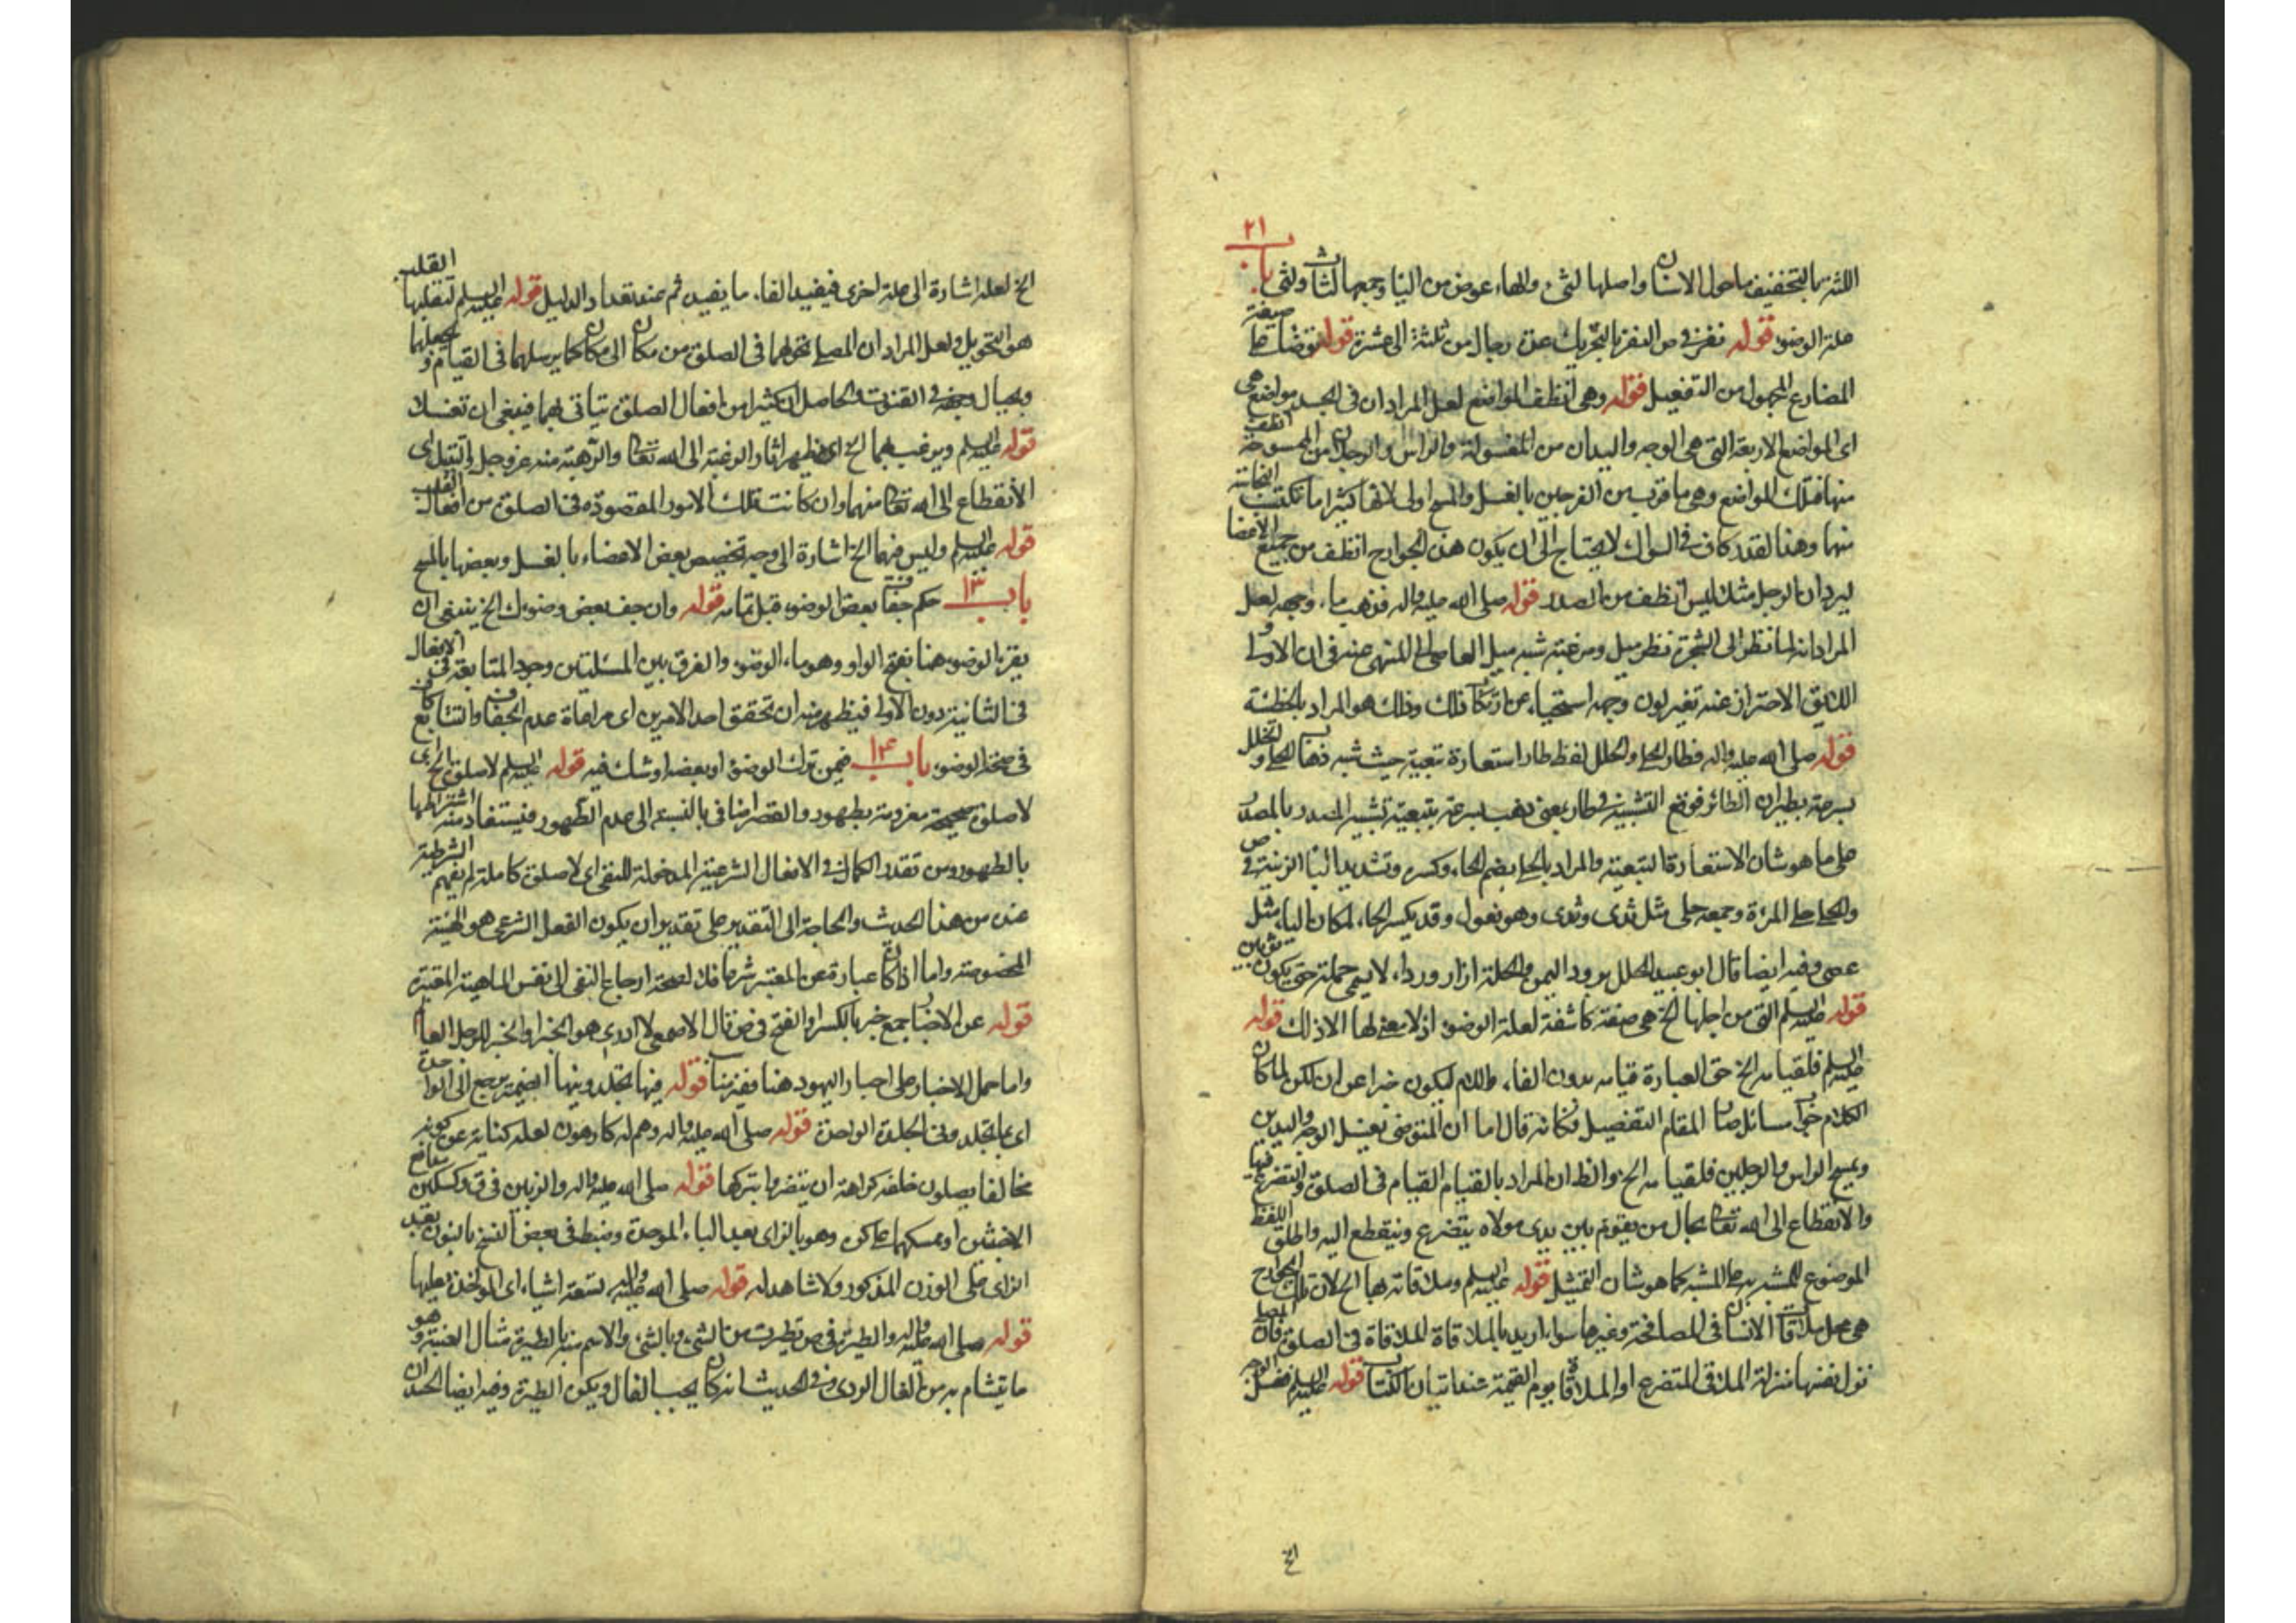 باب ٢١
اللثة بالتخفيف ماحول الاسنان واصلها لثى والهاء عوض من الياء وجمعها لثات ولثى
علة الوضوء قوله نفر في ص النفر بالتحريك عدة رجال من ثلثة الى عشرة قوله توضأ على صيغة
المضارع المجهول من التفعيل قوله وهى انظف المواضع لعل المراد ان فى الجسد مواضع هى
اى المواضع الاربعة التى هى الوجه واليدان من المغسولة والراس والرجلان من الممسوحة انظف
منها فتلك المواضع وهى ما قرب من الفرجين بالغسل والمسح اولى لانها كثيرا ما تكتب
منها وهذا القدر كاف فى السؤال لا يحتاج الى ان يكون هذه الجوارح انظف من جميع الاعضا
ليرد ان الرجل مثلا ليس انظف من الصدر قوله صلى الله عليه واله فذهب ماء وجهه لعل
المراد انه لما نظر الى الشجرة نظر ميل ورغبة شبه ميل العاصى الى المنهى عنه فى ان الاولى و
اللايق الاحتراز عنه تغير لون وجهه استحياء عن ارتكاب ذلك وذلك هو المراد بالخطئة
قوله صلى الله عليه واله فطار الحلى والحلل لفظ طار استعارة تبعية حيث شبه ذهاب الحلى والحلل
بسرعة بطيران الطائر فوقع التشبيه فى طار بمعنى ذهب بسرعة بتبعية تشبيه المصدر بالمصدر
على ما هو شان الاستعارة التبعية والمراد بالحلى بضم الحاء وكسره وتشديد اليا الزينة فى ص
والحلى حلى المرءة وجمعه حلى مثل ثدى وثدى وهو فعول وقد يكسر الحاء لمكان الياء مثل
عصى وفيه ايضا قال ابو عبيد الحلل برود اليمن والحلة ازار ورداء لا يسمى حلة حتى يكون ثوبين
قوله عليه السلم التى من اجلها الخ هى صفة كاشفة لعلة الوضوء اذ لا معنى لها الا ذلك قوله
عليه السلم فلقيامه الخ حق العبارة قيامه بدون الفاء واللام ليكون خبرا عن ان لكن لما كان
الكلام جواب سائل صار المقام التفصيل فكانه قال اما ان المتوضى يغسل الوجه واليدين
ويمسح الراس والرجلين فلقيامه الخ والظ ان المراد بالقيام القيام فى الصلوة والتضرع فيها
والانقطاع الى الله تعالى بحال من يقوم بين يدى مولاه يتضرع وينقطع اليه واطلق اللفظ
الموضوع للمشبه به على المشبه كما هو شان التمثيل قوله عليه السلم وملاقاته بها الخ لان تلك الجوارح
هى محل ملاقات الانسان فى المصافحة وغيرها سواء اريد بالملاقاة الملاقاة فى الصلوة فان المصلى
نزل نفسها منزلة الملاقى المتضرع او الملاقاة يوم القيمة عند اتيان الكتاب قوله عليه السلم فغسل الوجه
الخ
الخ لعله اشارة الى علة اخرى فيفيد الفاء ما يفيده ثم عند تعداد الدليل قوله عليه السلم لتقلبها القلب
هو التحويل ولعل المراد ان المصلى تحولهما فى الصلوة من مكان الى مكان كما يرسلهما فى القيام و يجعلها
وبحيال وجهه فى القنوت والحاصل ان كثيرا من افعال الصلوة يتاتى بهما فينبغى ان تغسلا
قوله عليه السلم ويرغب بهما الخ اى يظهر اثار الرغبة الى الله تعالى والرهبة منه عز وجل والتبتل اى
الانقطاع الى الله تعالى منهما وان كانت تلك الامور المقصودة فى الصلوة من افعال القلب
قوله عليه السلم وليس فيهما الخ اشارة الى وجه تخصيص بعض الاعضاء بالغسل وبعضها بالمسح
باب ١٣ حكم جفاف بعض الوضوء قبل تمامه قوله وان جف بعض وضوئك الخ ينبغى ان
يقرء الوضوء هنا بفتح الواو وهو ماء الوضوء والفرق بين المسئلتين وجود المتابعة فى الافعال
فى الثانية دون الاولى فيظهر منه ان تحقق احد الامرين اى مراعاة عدم الجفاف والتتابع كاف
فى صحة الوضوء باب ١٤ فيمن ترك الوضوء او بعضه او شك فيه قوله عليه السلم لا صلوة الخ اى
لا صلوة صحيحة مقرونة بطهور والقصر اضافى بالنسبة الى عدم الطهور فيستفاد منه اشتراطها
بالطهور ومن تقدر الكمال فى الافعال الشرعية المدخولة للنفى اى لا صلوة كاملة لم يفهم الشرطية
عنده من هذا الحديث والحاجة الى التقدير على تقدير ان يكون الفعل الشرعى هو الهيئة
المخصوصة واما اذا كان عبارة عن المعتبر شرعا فلا لصحة ارجاع النفى الى نفس الماهية المعتبرة
قوله عن الاحبار جمع حبر بالكسر او الفتح فى ص قال الاصمعى لا ادرى هو الحبر او الحبر للرجل العالم
واما حمل الاخبار على احبار اليهود هنا فغريب قوله فيها بجلد وبنها الضمير يرجع الى الواحدة
اى بالجلد وفى الجلدة الواحدة قوله صلى الله عليه واله وهم له كارهون لعله كناية عن كونه
مخالفا يصلون خلفه كراهة ان يتضروا بتركها قوله صلى الله عليه واله والزبين فى ق وكسكين مدافع
الاخبثين او ممسكهما على كره وهو بالزاى بعد الباء الموحدة وضبط فى بعض النسخ بالنون بعد
الزاى على الوزن المذكور ولا شاهد له قوله صلى الله عليه واله تسعة اشياء اى المؤاخذة عليها
قوله صلى الله عليه واله والطيرة فى ص تطيرت من الشىء وبالشىء والاسم منه الطيرة مثال العنبة وهو
ما يتشام به من الفال الردى وفى الحديث انه كان يحب الفال ويكره الطيرة وفيه ايضا الحسد ان